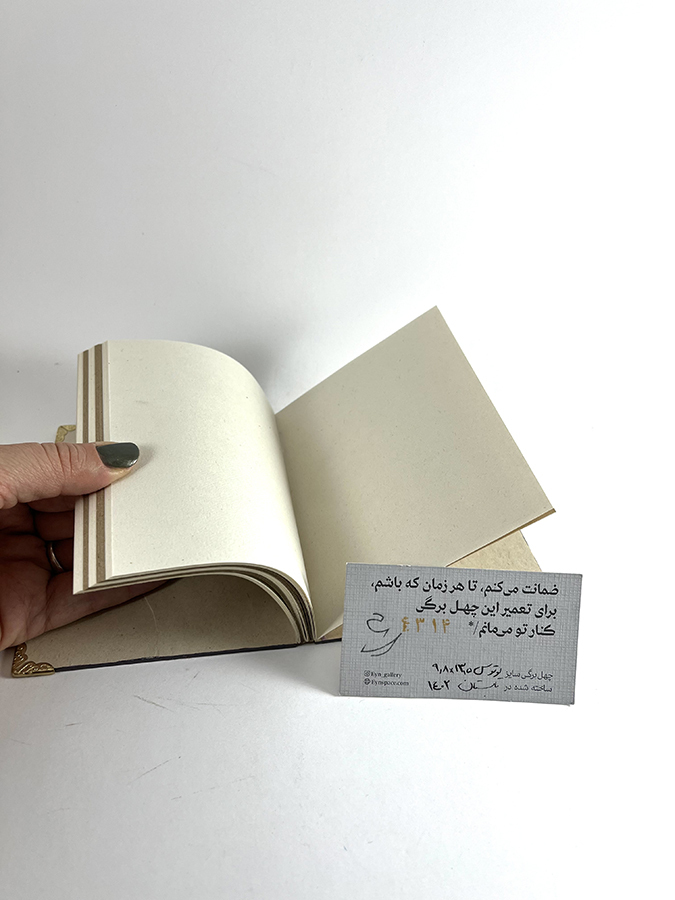 ضمانت می‌کنم، تا هر زمان که باشم،
برای تعمیر این چهل برگی
کنار تو می‌مانم/* ۴۳۱۴
چهل‌برگی سایز ۹٫۸×۱۳٫۵
ساخته شده در ۱۴۰۲
Eyn_gallery
Eynspace.com